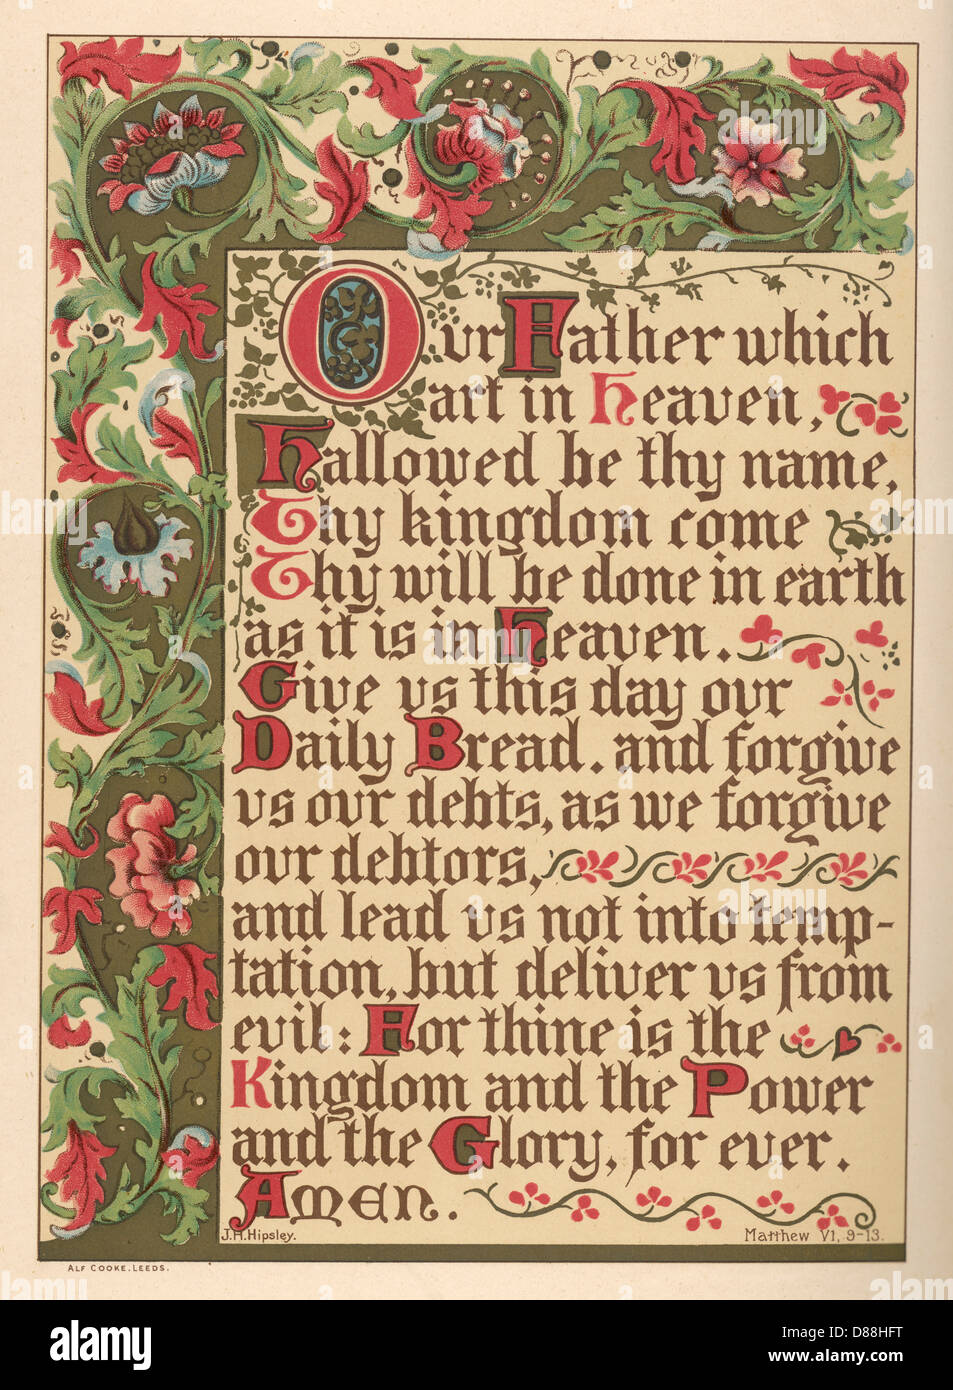 Our Father which
art in Heaven,
Hallowed be thy name,
Thy kingdom come
Thy will be done in earth
as it is in Heaven.
Give us this day our
Daily Bread. and forgive
us our debts, as we forgive
our debtors,
and lead us not into temp-
tation, but deliver us from
evil: For thine is the
Kingdom and the Power
and the Glory, for ever.
Amen.
J.H.Hipsley.
Matthew VI, 9-13.
ALF COOKE. LEEDS.
alamy
Image ID: D88HFT
www.alamy.com